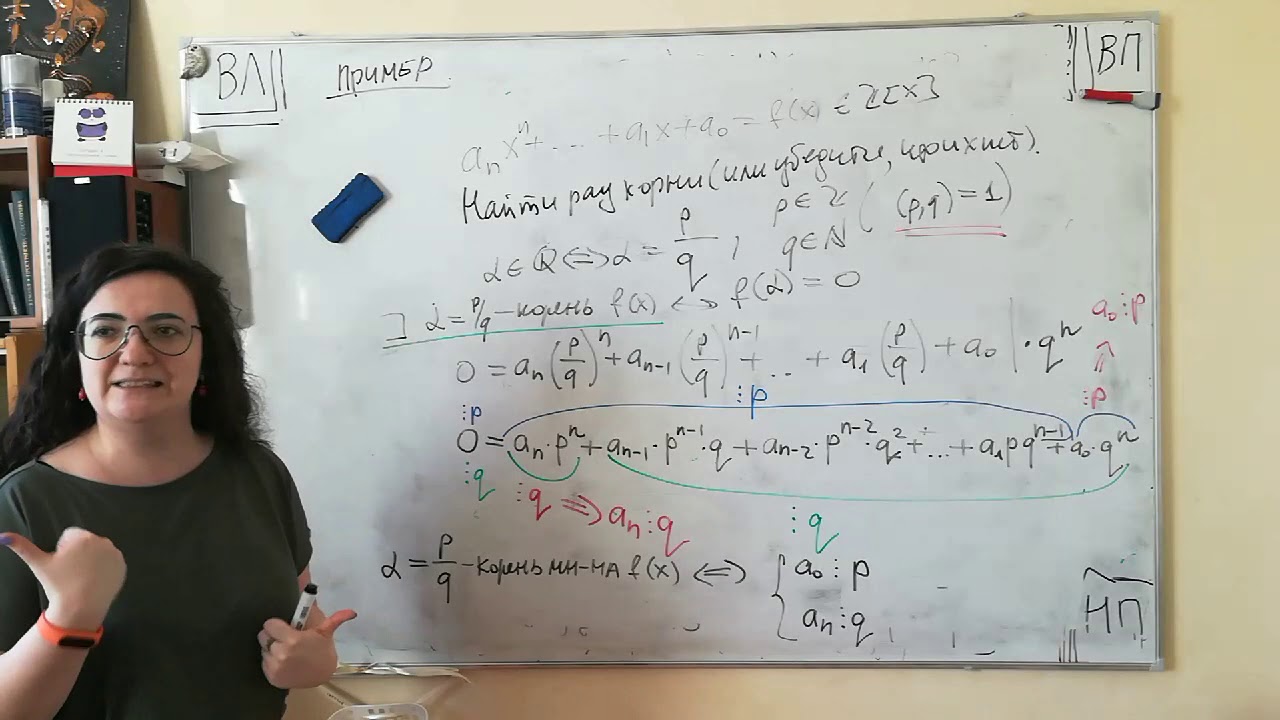 ВЛ
ПРИМЕР
ВП
aₙxⁿ+...+a₁x+a₀=f(x)∈ℤ[x]
Найти рац корни (или убедиться, что их нет).
α∈ℚ⇔α=p/q, p∈ℤ q∈ℕ ((p,q)=1)
] α=p/q-корень f(x) ↔ f(α)=0
0=aₙ(p/q)ⁿ+aₙ₋₁(p/q)ⁿ⁻¹+...+a₁(p/q)+a₀|·qⁿ
a₀⋮p
⇑
⋮p
⋮p
⋮p
0=aₙ·pⁿ+aₙ₋₁·pⁿ⁻¹·q+aₙ₋₂·pⁿ⁻²·q²+...+a₁pqⁿ⁻¹+a₀·qⁿ
⋮q
⋮q ⇒ aₙ⋮q
⋮q
α=p/q-корень мн-на f(x) ⇔ { a₀⋮p
aₙ⋮q
НП